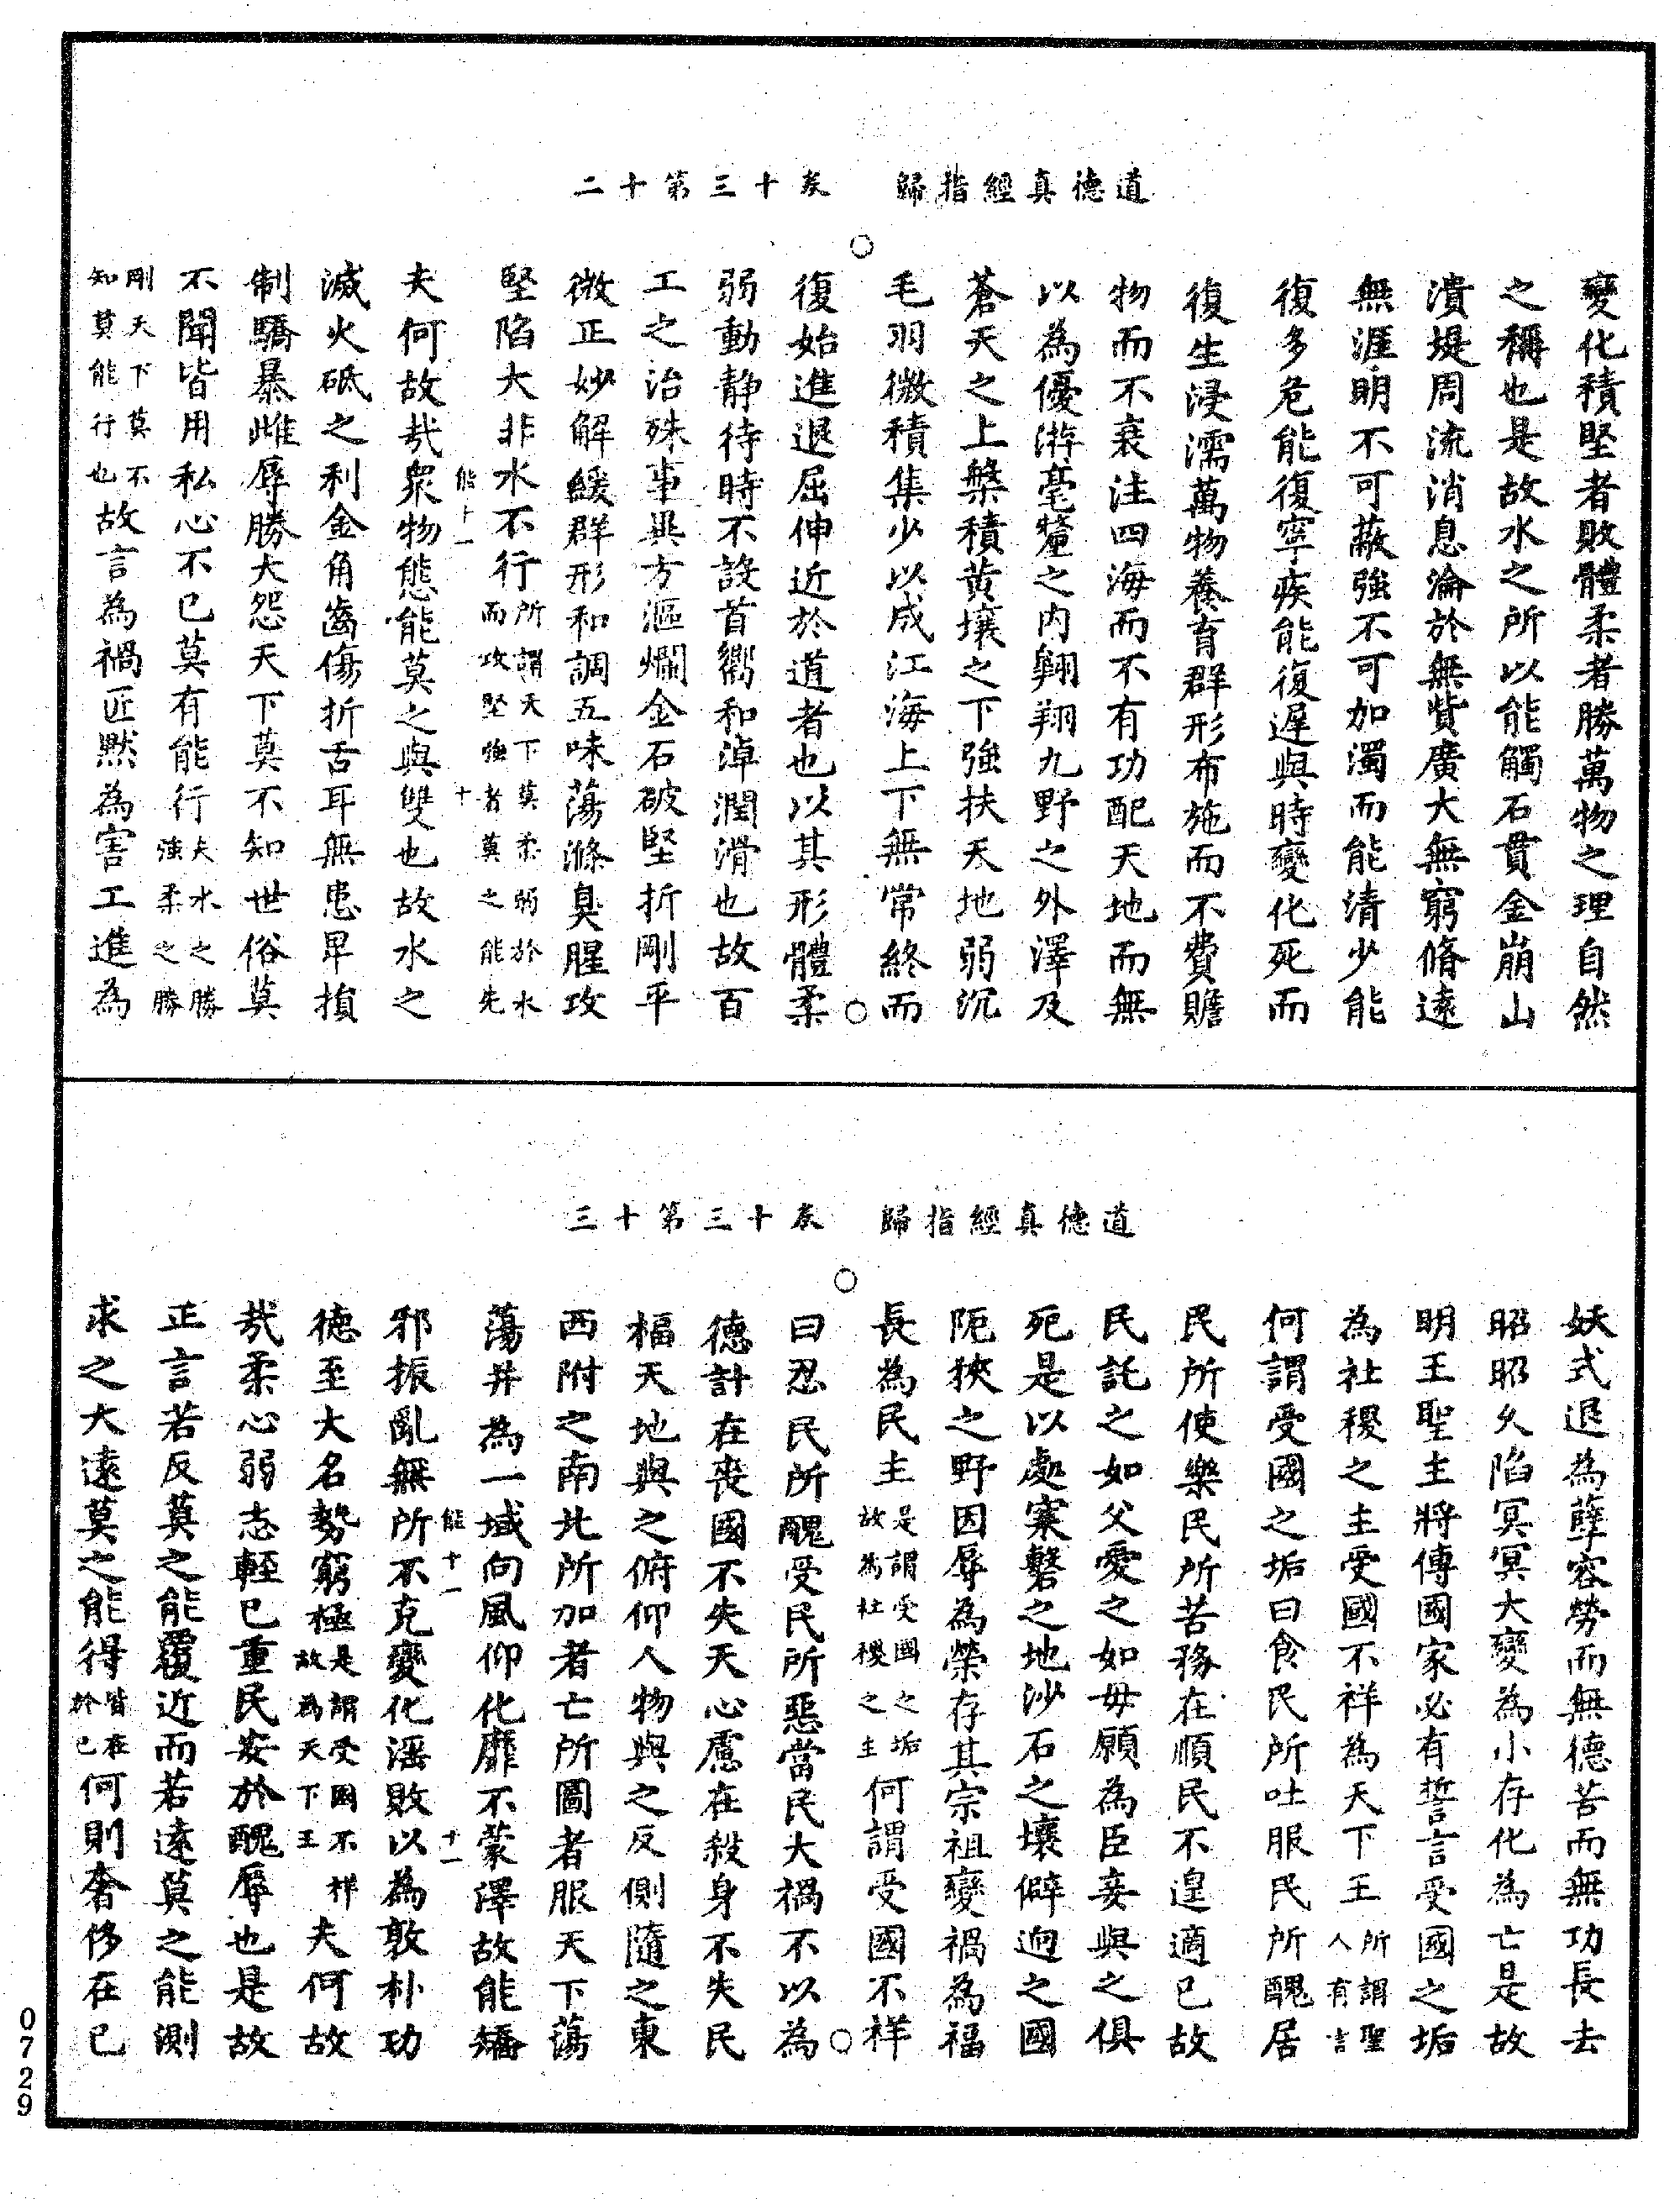 道德真經指歸　卷十三第十二
變化積堅者敗體柔者勝萬物之理自然
之稱也是故水之所以能觸石貫金崩山
潰堤周流消息淪於無貲廣大無窮脩遠
無涯明不可蔽強不可加濁而能清少能
復多危能復寧疾能復遲與時變化死而
復生浸濡萬物養育群形布施而不費贍
物而不衰注四海而不有功配天地而無
以為優游毫釐之內翱翔九野之外澤及
蒼天之上槃積黃壤之下強扶天地弱沉
毛羽微積集少以成江海上下無常終而
復始進退屈伸近於道者也以其形體柔
弱動靜待時不設首嚮和淖潤滑也故百
工之治殊事異方漚爛金石破堅折剛平
微正妙解緩群形和調五味蕩滌臭腥攻
堅陷大非水不行所謂天下莫柔弱於水而攻堅強者莫之能先
夫何故哉衆物態能莫之與雙也故水之
滅火砥之利金角齒傷折舌耳無患卑損
制驕暴雌辱勝大怨天下莫不知世俗莫
不聞皆用私心不已莫有能行夫水之勝強柔之勝
剛天下莫不知莫能行也故言為禍匠默為害工進為
能十一
十
道德真經指歸　卷十三第十三
妖式退為孽容勞而無德苦而無功長去
昭昭久陷冥冥大變為小存化為亡是故
明王聖主將傳國家必有誓言受國之垢
為社稷之主受國不祥為天下王所謂聖人有言
何謂受國之垢曰食民所吐服民所醜居
民所使樂民所苦務在順民不遑適已故
民託之如父愛之如母願為臣妾與之俱
死是以處寨磬之地沙石之壤僻迥之國
阨狹之野因辱為榮存其宗祖變禍為福
長為民主是謂受國之垢故為社稷之主何謂受國不祥
曰忍民所醜受民所惡當民大禍不以為
德計在喪國不失天心慮在殺身不失民
福天地與之俯仰人物與之反側隨之東
西附之南北所加者亡所圖者服天下蕩
蕩并為一域向風仰化靡不蒙澤故能矯
邪振亂無所不克變化滛敗以為敦朴功
德至大名勢窮極是謂受國不祥故為天下王夫何故
哉柔心弱志輕已重民安於醜辱也是故
正言若反莫之能覆近而若遠莫之能測
求之大遠莫之能得皆在於已何則奢侈在已
能十一
十一
0729